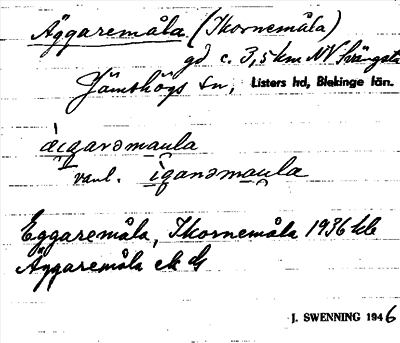 Äggaremåla (Ikornemåla)
gd c. 3,5 km NV Svängsta
Jämshögs sn, Listers hd, Blekinge län.
äi̯garəmau̯la
vanl. i̯ganəmau̯la
Eggaremåla, Ikornemåla 1936 kb
Äggaremåla ek
J. SWENNING 1946